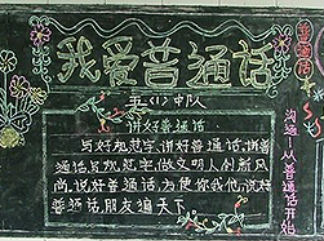 我爱普通话
五(1)中队
讲好普通话
写好规范字,讲好普通话,拼普
通话,写规范字,做文明人,创新风
尚,说好普通话,方便你我他,说好
普通话,朋友遍天下
普通话
沟通!从普通话开始